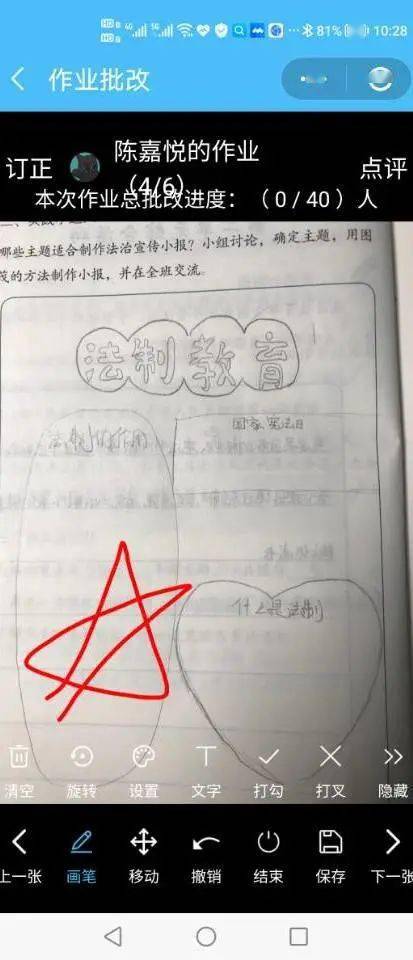 81% 10:28
作业批改
订正 陈嘉悦的作业 点评
(4/6)
本次作业总批改进度：（0/40）人
哪些主题适合制作法治宣传小报？小组讨论，确定主题，用图
的方法制作小报，并在全班交流。
法制教育
法制的作用
国家宪法日
什么是法制
清空 旋转 设置 文字 打勾 打叉 隐藏
上一张 画笔 移动 撤销 结束 保存 下一张